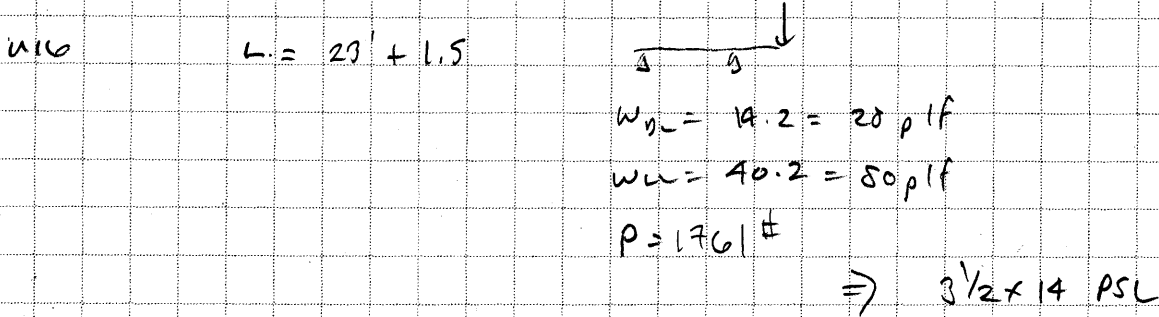 L = 23' + 1.5
W DL = 14.2 = 28 plf
W LL = 40.2 = 80 plf
P = 1761 #
⇒ 3 1/2 x 14 PSL